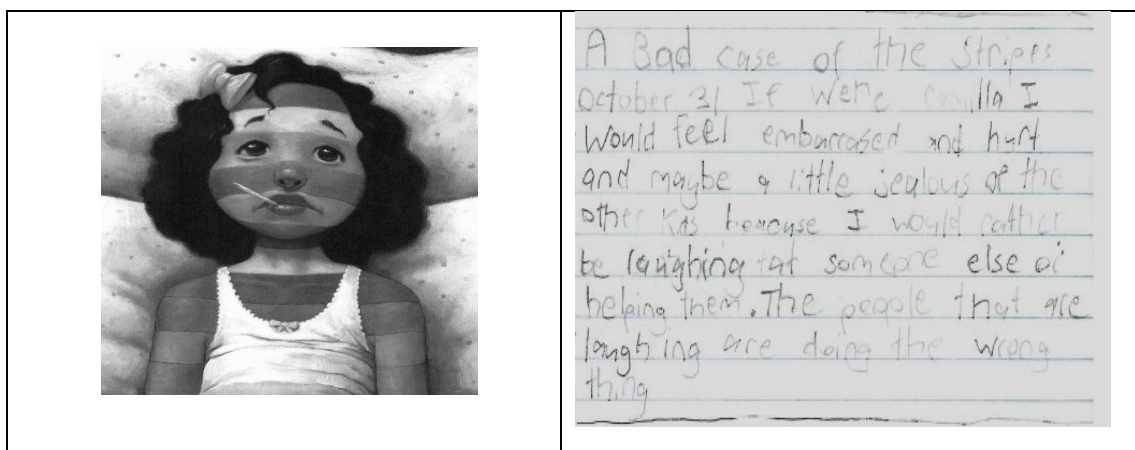 A Bad case of the Stripes
October 31 If were Camilla I
Would feel embarrased and hurt
and maybe a little jealous of the
other kids because I would rather
be laughing at someone else or
helping them. The people that are
laughing are doing the wrong
thing